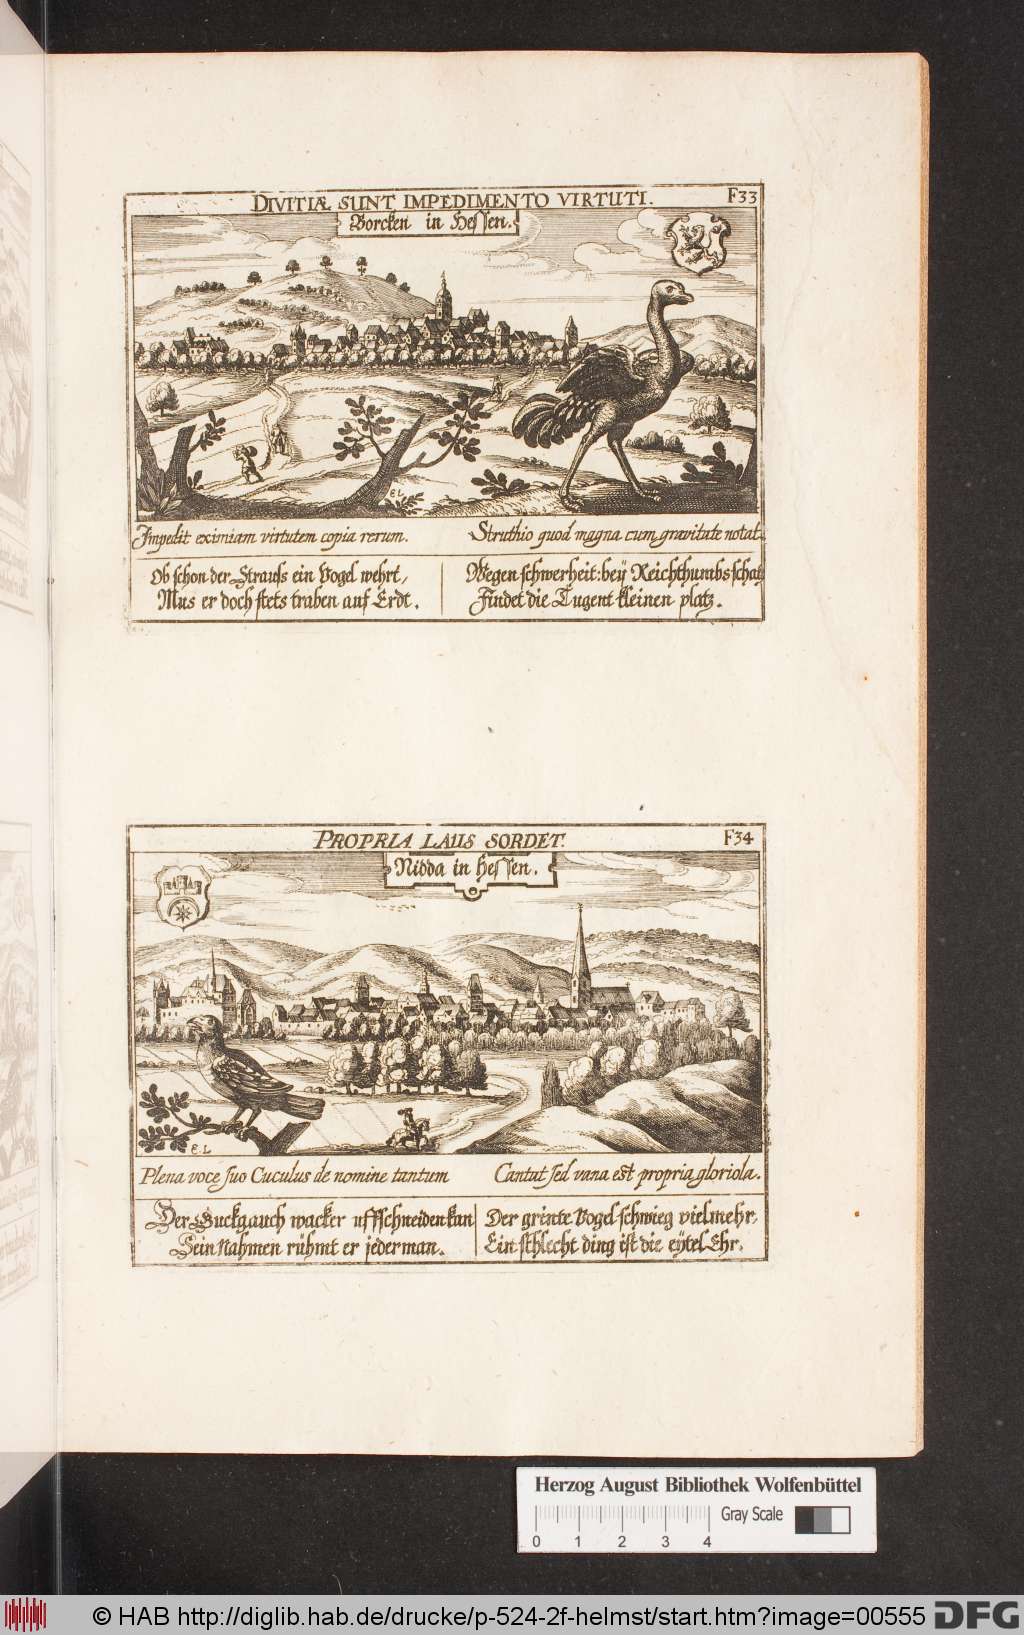 DIVITIÆ SUNT IMPEDIMENTO VIRTUTI.
F33
Borcken in Hessen.
EL
Impedit eximiam virtutem copia rerum.
Struthio quod magna cum gravitate notat.
Ob schon der Strauss ein Vogel wehrt,
Mus er doch stets traben auf Erdt.
Wegen schwerheit: bey Reichthumbs schatz
Findet die Tugent kleinen platz.
PROPRIA LAUS SORDET.
F34
Nidda in Hessen.
E.L
Plena voce suo Cuculus de nomine tantum
Cantat sed vana est propria gloriola.
Der Guckgauch wacker uffschneiden kan
Sein Nahmen rühmt er jederman.
Der grinte Vogel schwieg vielmehr,
Ein schlecht ding ist die eytel Ehr.
Herzog August Bibliothek Wolfenbüttel
Gray Scale
0 1 2 3 4
© HAB http://diglib.hab.de/drucke/p-524-2f-helmst/start.htm?image=00555
DFG